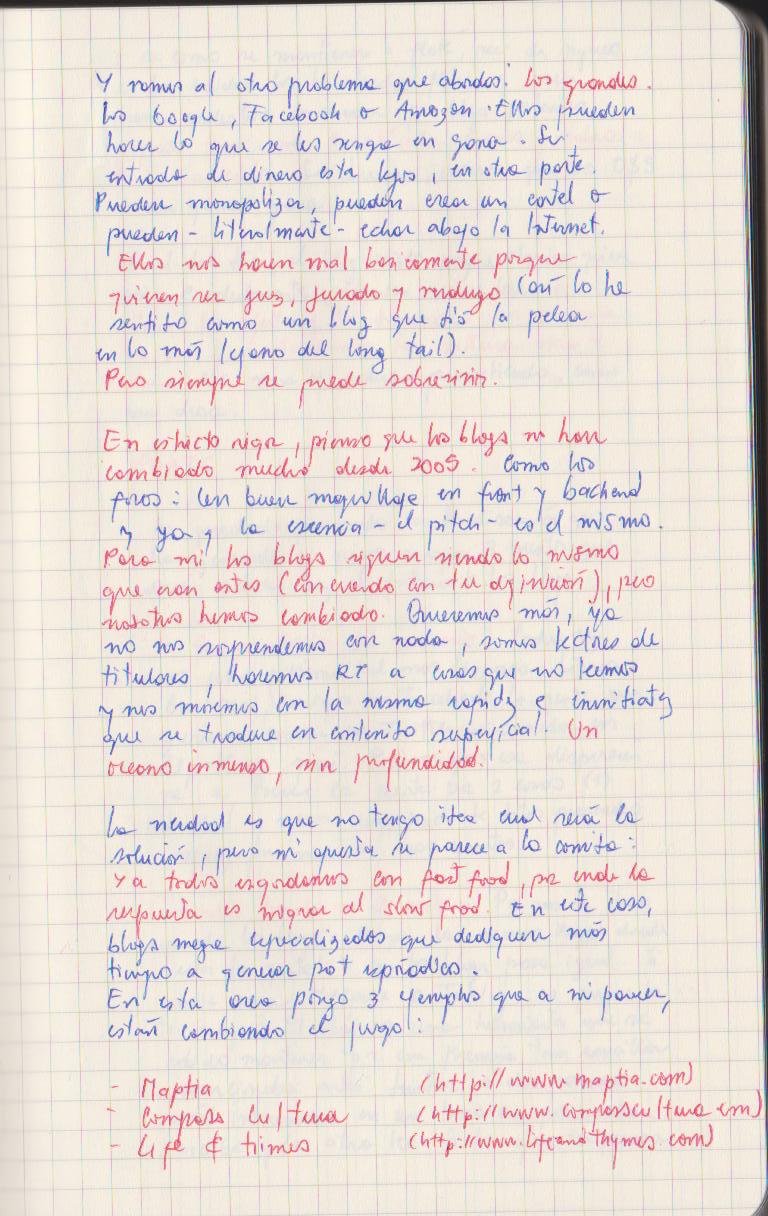 Y vamos al otro problema que abordas: los grandes.
Los Google, Facebook o Amazon. Ellos pueden
hacer lo que se les venga en gana. Su
entrada de dinero esta lejos, en otra parte.
Pueden monopolizar, pueden crear un cartel o
pueden - literalmente - echar abajo la Internet.
Ellos nos hacen mal basicamente porque
quieren ser juez, jurado y verdugo (así lo he
sentido como un blog que dió la pelea
en lo más lejano del long tail).
Pero siempre se puede sobrevivir.
En estricto rigor, pienso que los blogs no han
cambiado mucho desde 2005. Como los
foros: un buen maquillaje en front y backend
y ya, la esencia - el pitch - es el mismo.
Para mi los blogs siguen siendo lo mismo
que eran antes (concuerdo con tu definición), pero
nosotros hemos cambiado. Queremos más, ya
no nos sorprendemos con nada, somos lectores de
titulares, hacemos RT a cosas que no leemos
y nos movemos con la misma rapidez e inmediatez
que se traduce en contenido superficial. Un
oceano inmenso, sin profundidad.
La verdad es que no tengo idea cual será la
solución, pero mi apuesta se parece a la comida:
Ya todos engordamos con fast food, por ende la
respuesta es migrar al slow food. En este caso,
blogs mega especializados que dediquen más
tiempo a generar post
En esta area pongo 3 ejemplos que a mi parecer,
están cambiando el juego:
- Maptia (http://www.maptia.com)
- Compass Cultura (http://www.compasscultura.com)
- Life & thimes (http://www.lifeandthymes.com)